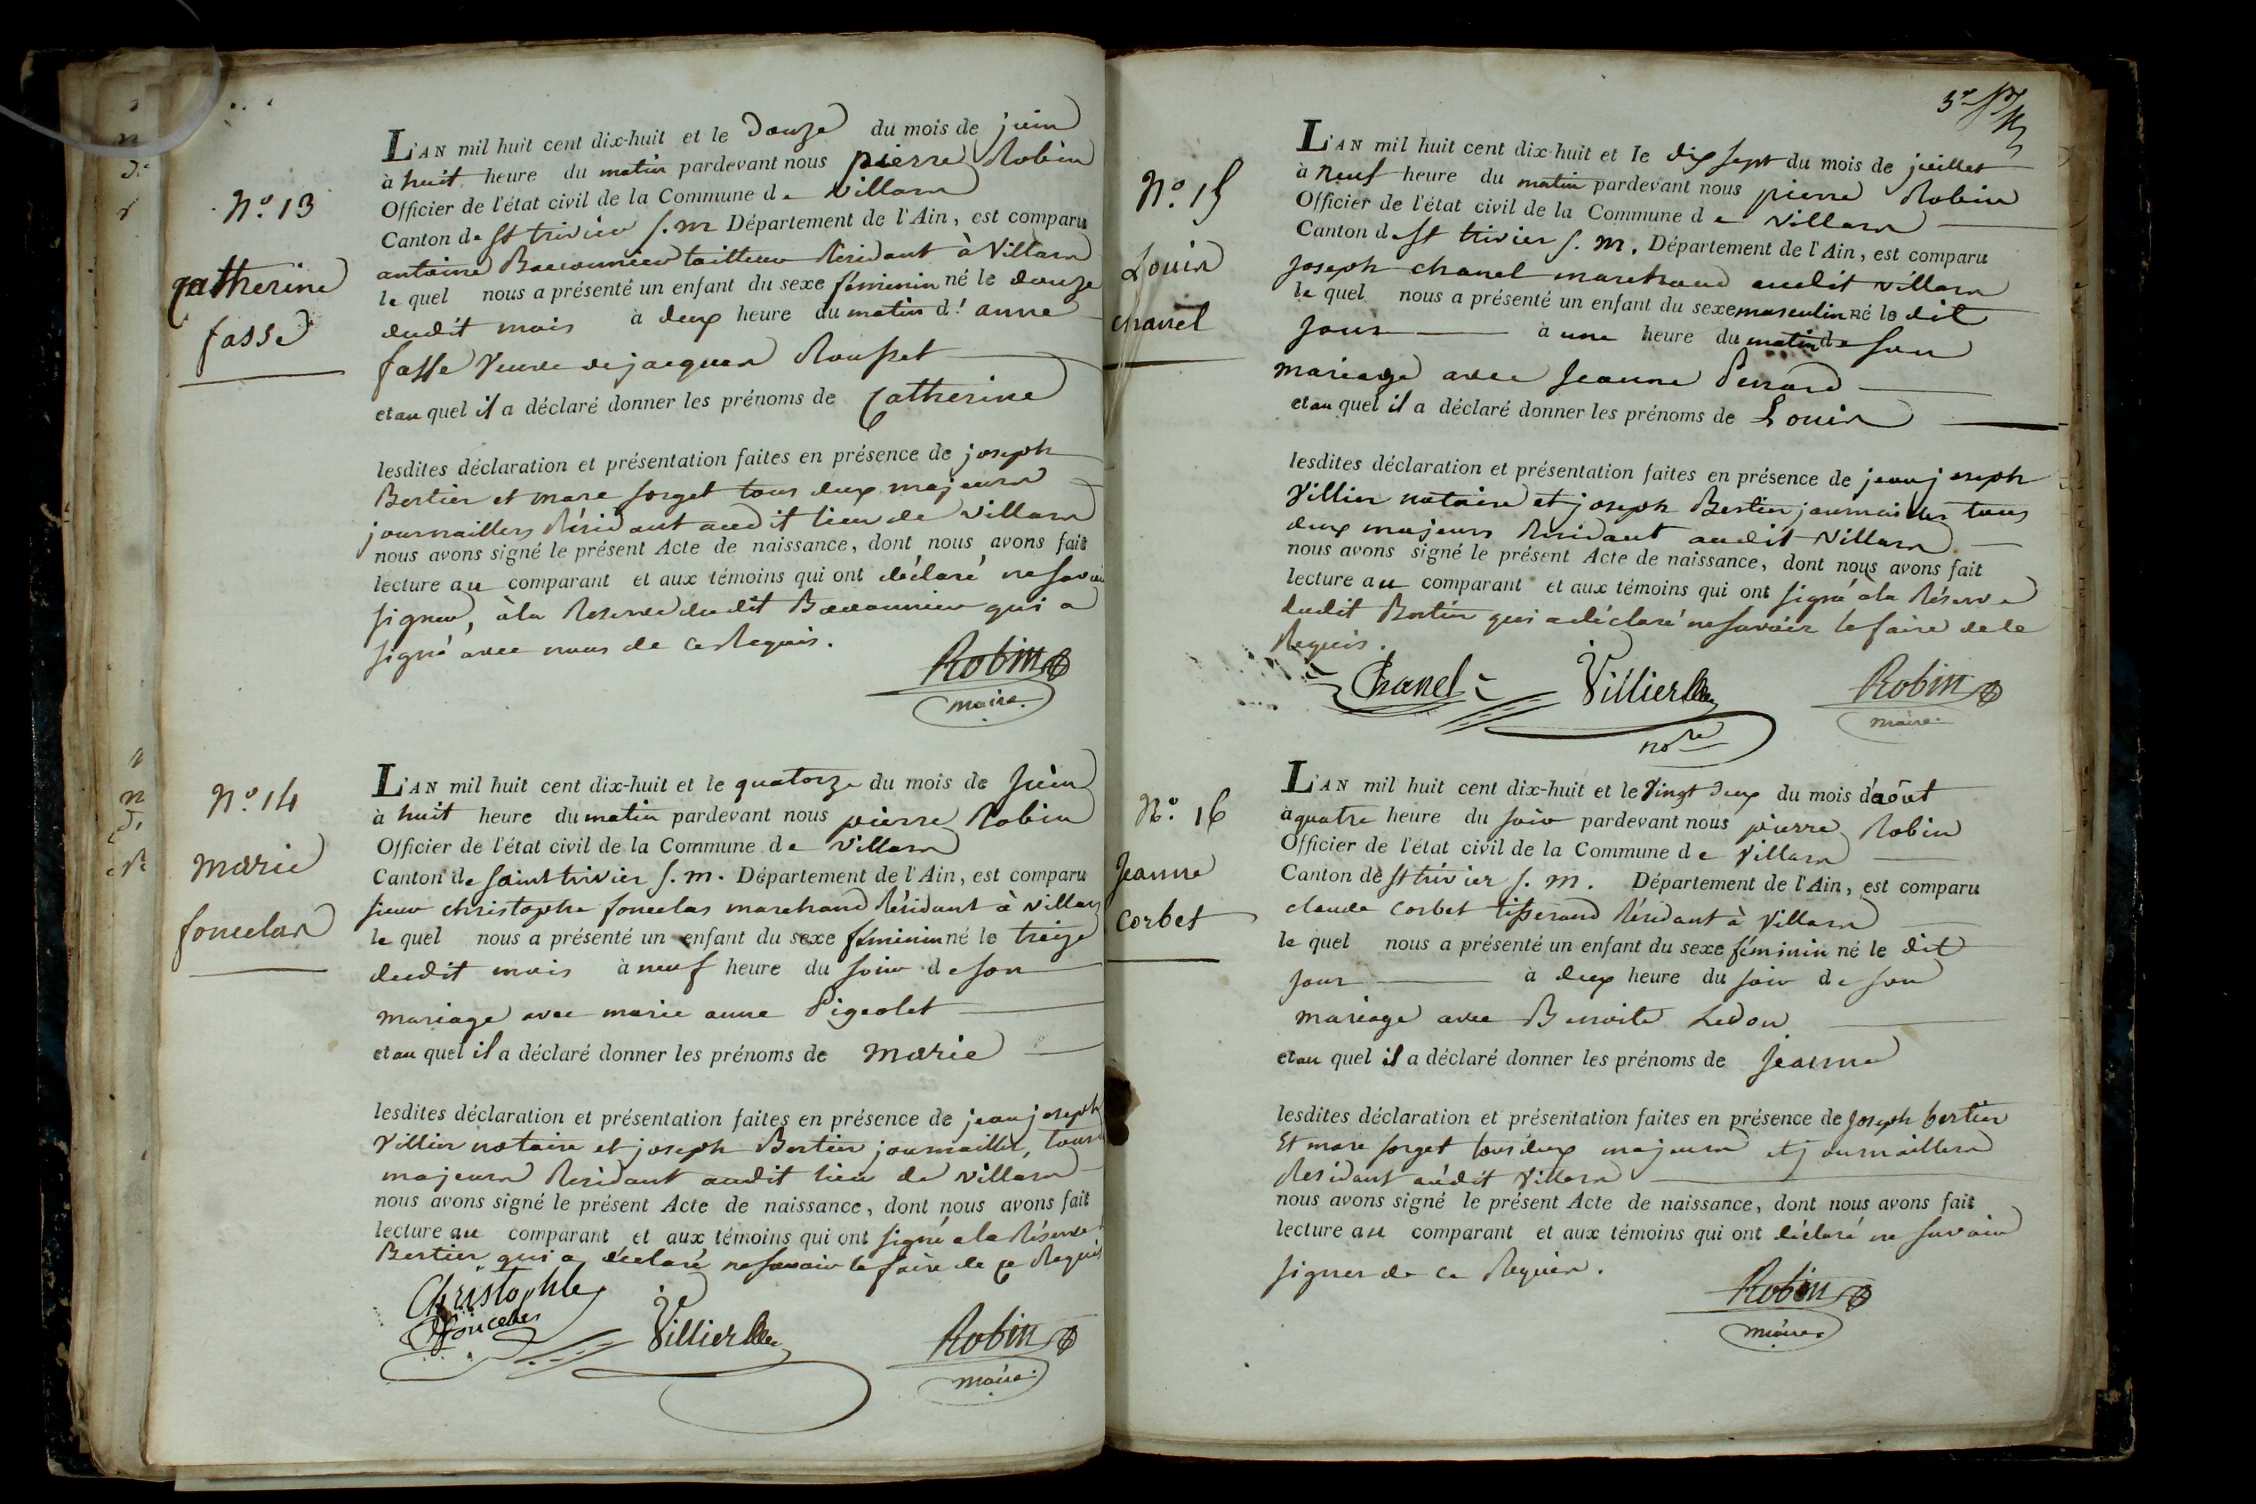 N.º 13
Catherine
fasse
L'AN mil huit cent dix-huit et le Douze du mois de juin
à huit heure du matin pardevant nous pierre Robin
Officier de l'état civil de la Commune de Villars
Canton de St trivier s. m Département de l'Ain, est comparu
antoine tailleur Résidant à Villars
le quel nous a présenté un enfant du sexe féminin né le douze
dudit mois à deux heure du matin d' anne
fasse Veuve de jacques Rousset
et au quel il a déclaré donner les prénoms de Catherine
lesdites déclaration et présentation faites en présence de joseph
Bertier et marc forget tous deux majeurs
journaillers Résidant audit lieu de Villars
nous avons signé le présent Acte de naissance, dont nous avons fait
lecture au comparant et aux témoins qui ont déclaré ne savoir
signer, à la Réserve dudit qui a
signé avec nous de ce Requis.
Robin
maire.
N.º 14
marie
foncelas
L'AN mil huit cent dix-huit et le quatorze du mois de Juin
à huit heure du matin pardevant nous pierre Robin
Officier de l'état civil de la Commune de Villars
Canton de Saint trivier s. m. Département de l'Ain, est comparu
sieur christophe foncelas marchand Résidant à Villars
le quel nous a présenté un enfant du sexe féminin né le treize
dudit mois à neuf heure du soir de son
mariage avec marie anne Pigeolet
et au quel il a déclaré donner les prénoms de marie
lesdites déclaration et présentation faites en présence de jean joseph
Villier notaire et joseph Bertier journaillier, tous
majeurs Résidant audit lieu de Villars
nous avons signé le présent Acte de naissance, dont nous avons fait
lecture au comparant et aux témoins qui ont signé a la Réserve
Bertier qui a déclaré ne savoir le faire de ce Requis
Christophle
foncelas
Villier
Robin
maire.
N.º 15
Louis
chanel
L'AN mil huit cent dix-huit et le dix sept du mois de juillet
à neuf heure du matin pardevant nous pierre Robin
Officier de l'état civil de la Commune de Villars
Canton de St trivier s. m. Département de l'Ain, est comparu
joseph chanel marchand audit Villars
le quel nous a présenté un enfant du sexe masculin né le dit
jour à une heure du matin de son
mariage avec Jeanne Perrard
et au quel il a déclaré donner les prénoms de Louis
lesdites déclaration et présentation faites en présence de jean joseph
Villier notaire et joseph Bertier journailler tous
deux majeurs Résidant audit Villars
nous avons signé le présent Acte de naissance, dont nous avons fait
lecture au comparant et aux témoins qui ont signé a la Réserve
dudit Bertier qui a déclaré ne savoir le faire de ce
Requis.
Chanel
Villier
nore
Robin
maire.
N.º 16
Jeanne
Corbet
L'AN mil huit cent dix-huit et le Vingt deux du mois d'août
à quatre heure du soir pardevant nous pierre Robin
Officier de l'état civil de la Commune de Villars
Canton de St trivier s. m. Département de l'Ain, est comparu
claude Corbet tisserand Résidant à Villars
le quel nous a présenté un enfant du sexe féminin né le dit
jour à deux heure du soir de son
mariage avec Benoite Ledou
et au quel il a déclaré donner les prénoms de Jeanne
lesdites déclaration et présentation faites en présence de Joseph bertier
Et marc forget tous deux majeurs et journaillers
Résidant audit Villars
nous avons signé le présent Acte de naissance, dont nous avons fait
lecture au comparant et aux témoins qui ont déclaré ne savoir
signer de ce Requis.
Robin
maire.